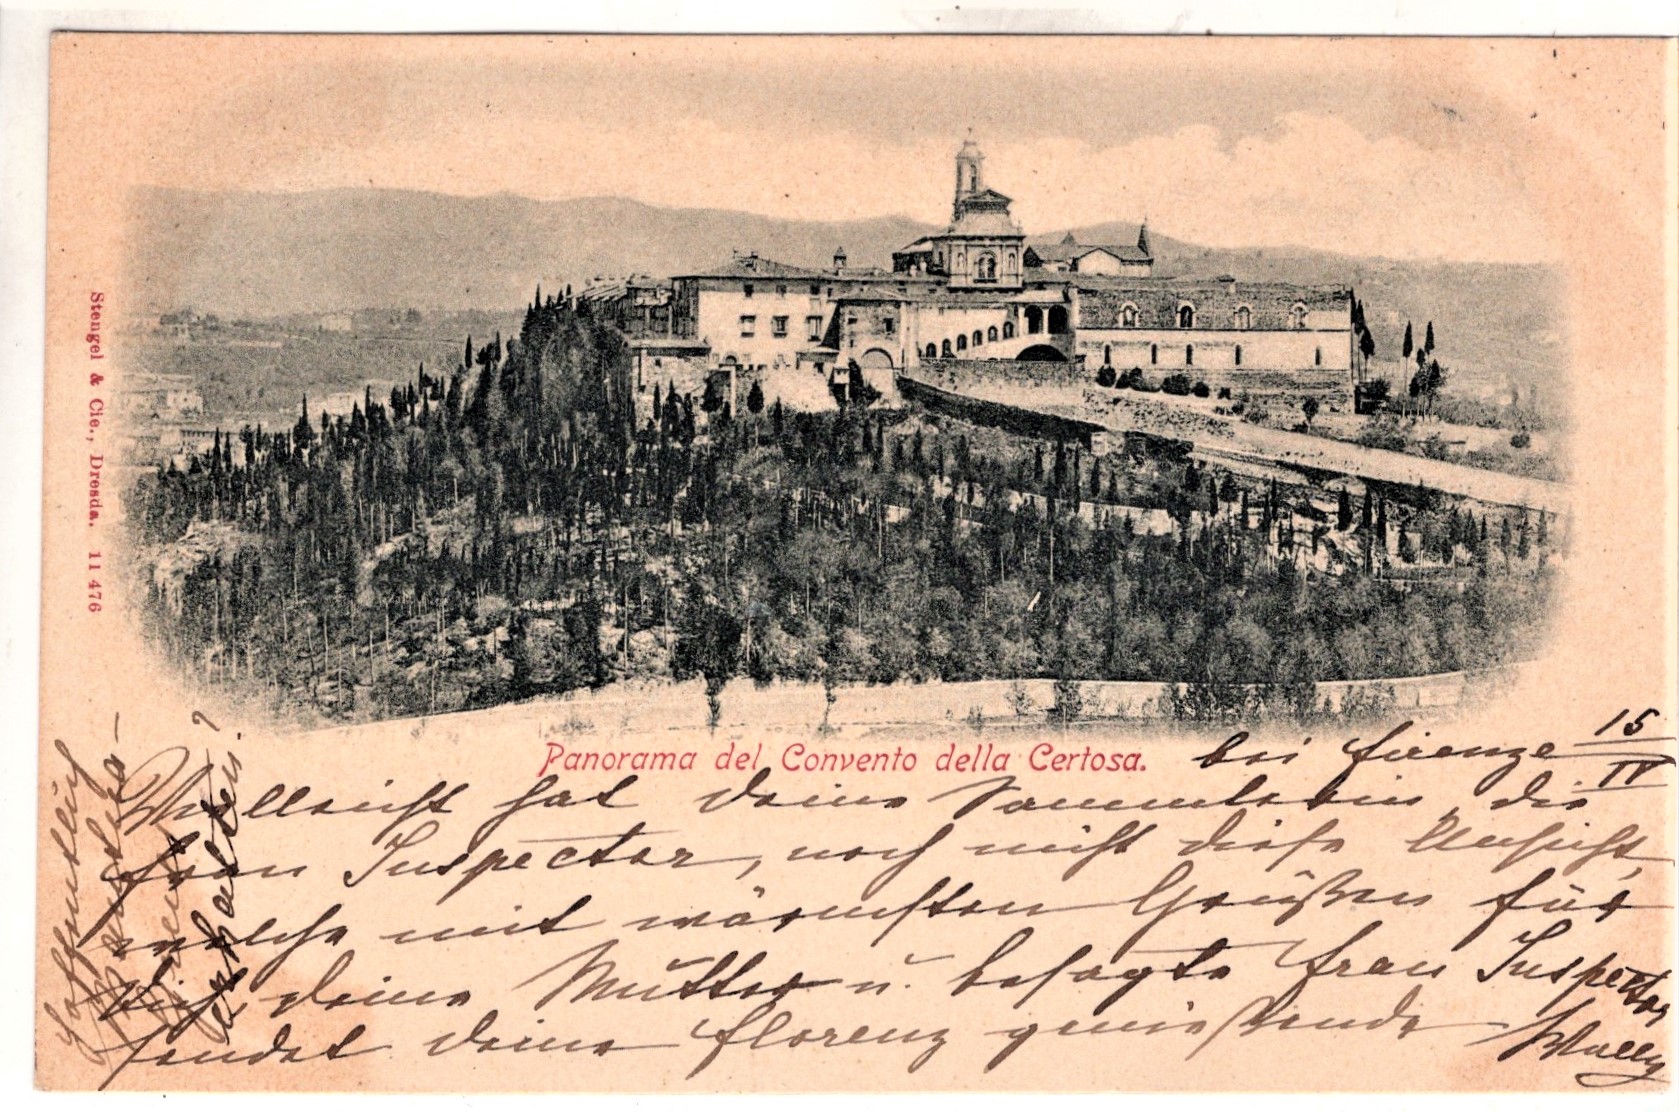 Stengel & Cie., Dresda. 11 476
Panorama del Convento della Certosa.
bei Firenze 15/IV
Vielleicht hat deine Sammlerin, die
Frau Inspector, noch nicht diese Ansicht,
welche mit wärmsten Grüßen für
Dich, deine Mutter u. besagte Frau Inspector
sendet deine Florenz genießende Wally
Hoffentlich
erhalten?